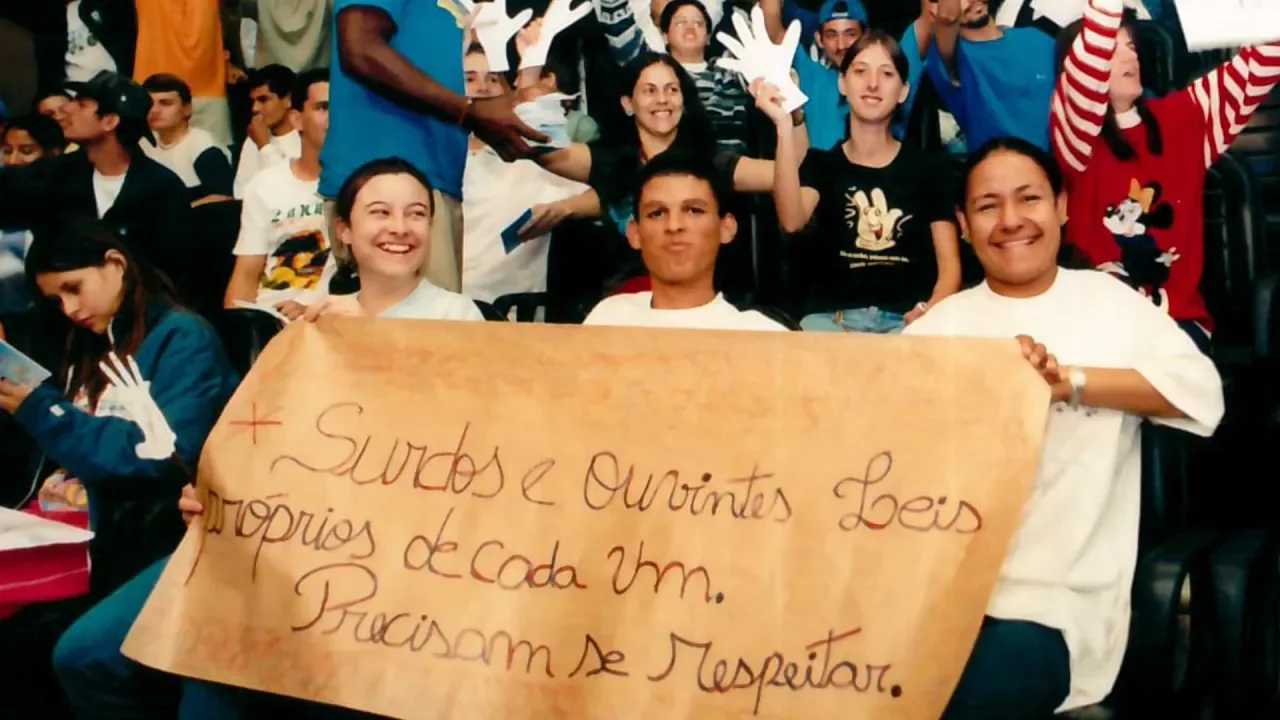 * Surdos e Ouvintes Leis
próprios de cada Um.
Precisam se respeitar.